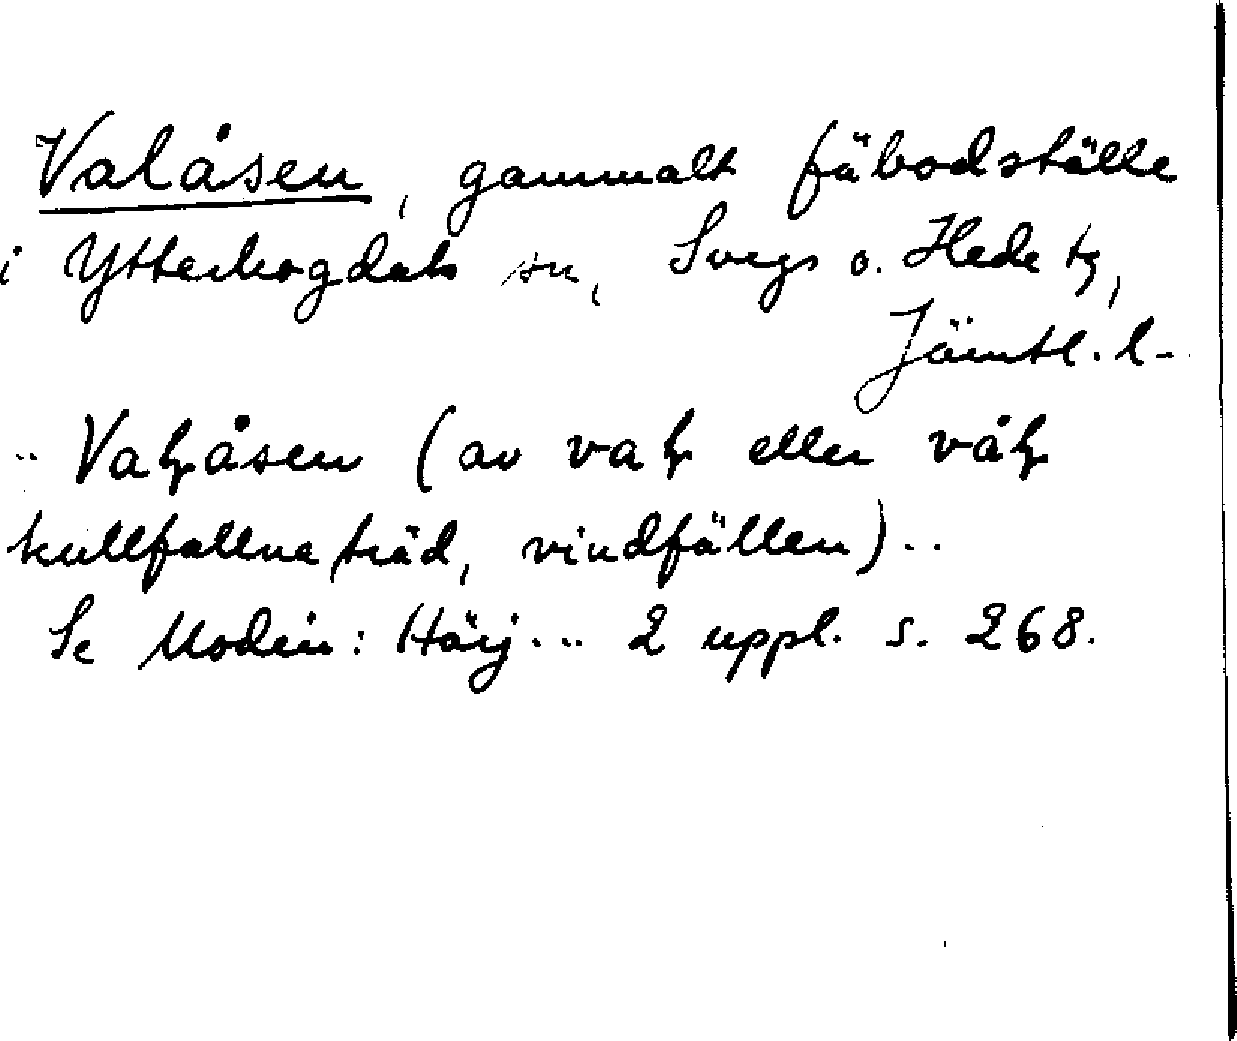 Valåsen, gammalt fäbodställe
i Ytterhogdals sn, Svegs o. Hede tg,
Jämtl. l.
.. Vaļåsen (av vaļ eller våļ
kullfallna träd, vindfällen)..
Se Modin: Härj... 2 uppl. s. 268.